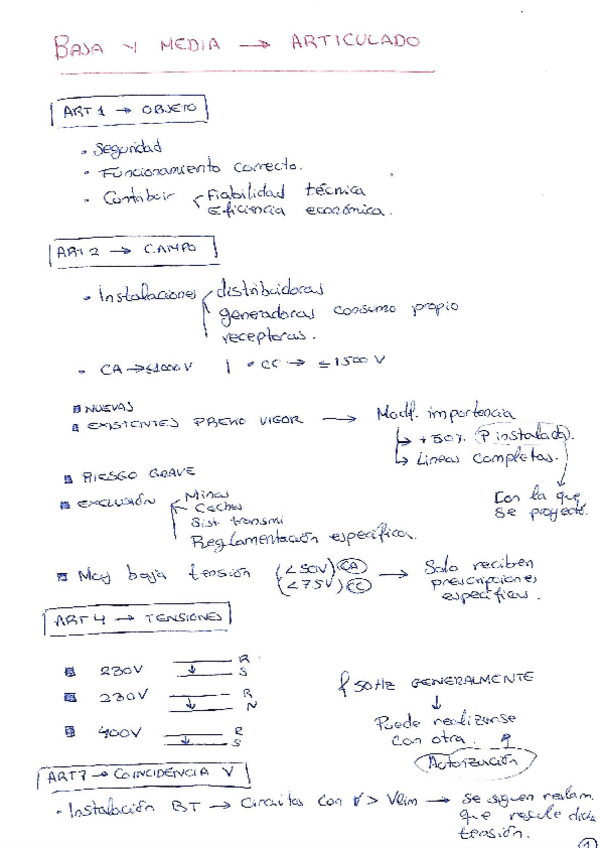 BAJA Y MEDIA → ARTICULADO
ART 1 → OBJETO
• Seguridad
• Funcionamiento correcto.
• Contribuir Fiabilidad técnica
Eficiencia económica.
ART 2 → CAMPO
• Instalaciones distribuidoras
generadoras consumo propio
receptoras.
• CA → ≤1000 V | • CC → ≤ 1500 V
NUEVAS
EXISTENTES PREVIO VIGOR → Modf. importancia
↳ +50% P instalada.
↳ Líneas completas.
Con la que
se proyectó.
RIESGO GRAVE
EXCLUSIÓN Minas
Coches
Sist. transmi
Reglamentación específica.
Muy baja tensión (<50V) CA → Solo reciben
(<75V) CC prescripciones
específicas.
ART 4 → TENSIONES
230V R
S
230V R
N
400V R
S
f 50Hz GENERALMENTE
↓
Puede realizarse
con otra.
Autorización
ART 7 → COINCIDENCIA V
• Instalación BT → Circuitos con V > Vlim → se siguen reglam.
que regule dicha
tensión.
1